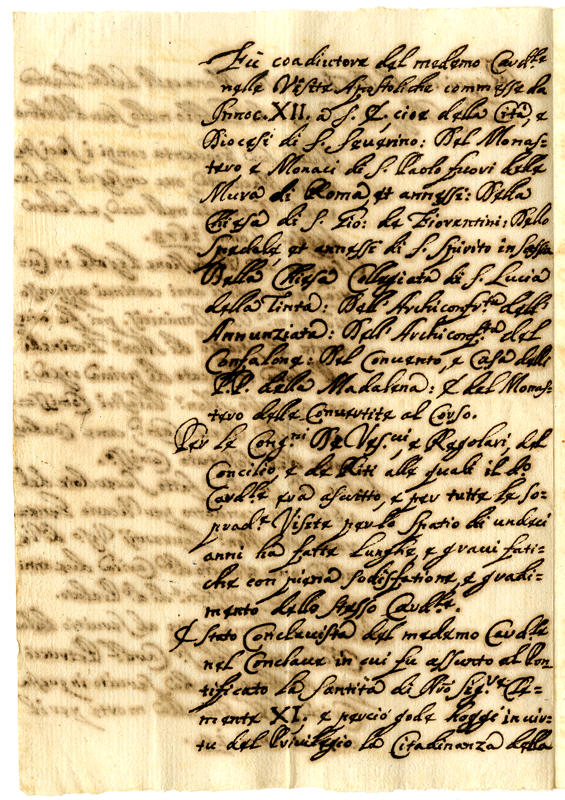 Fù coadiutore del medemo Card.le
nelle Visite Apostoliche commesse da
Innoc. XII. a S. E. cioe della Città, e
Diocesi di S. Severino: Del Monas-
tero, e Monaci di S. Paolo fuori delle
Mura di Roma, et annessi: Della
Chiesa di S. Gio: de Fiorentini: Dello
Spedale, et annessi di S. Spirito in Sassia
Della Chiesa Collegiata di S. Lucia
della Tinta: Dell'Archiconfr.ta dell'
Annunziata: Dell'Archiconf.ta del
Confalone: Del Convento, e Casa delli
P.P. della Madalena: E del Monas-
tero delle Convertite al Corso.
Per le Cong.ni De Ves.cui, e Regolari, del
Concilio, e de Riti alle quali il d.o
Card.le era ascritto, e per tutte le so-
prad.e Visite per lo spatio di undeci
anni ha fatte lunghe, e gravi fati-
che con piena sodisfatione, e gradi-
mento dello stesso Card.le.
E stato Conclavista del medemo Card.le
nel Conclave in cui fu assunto al Pon-
tificato la Santità di Nr̃o Sig.re Cle-
mente XI. e perciò gode hoggi in vir-
tu del Privilegio la Cittadinanza della